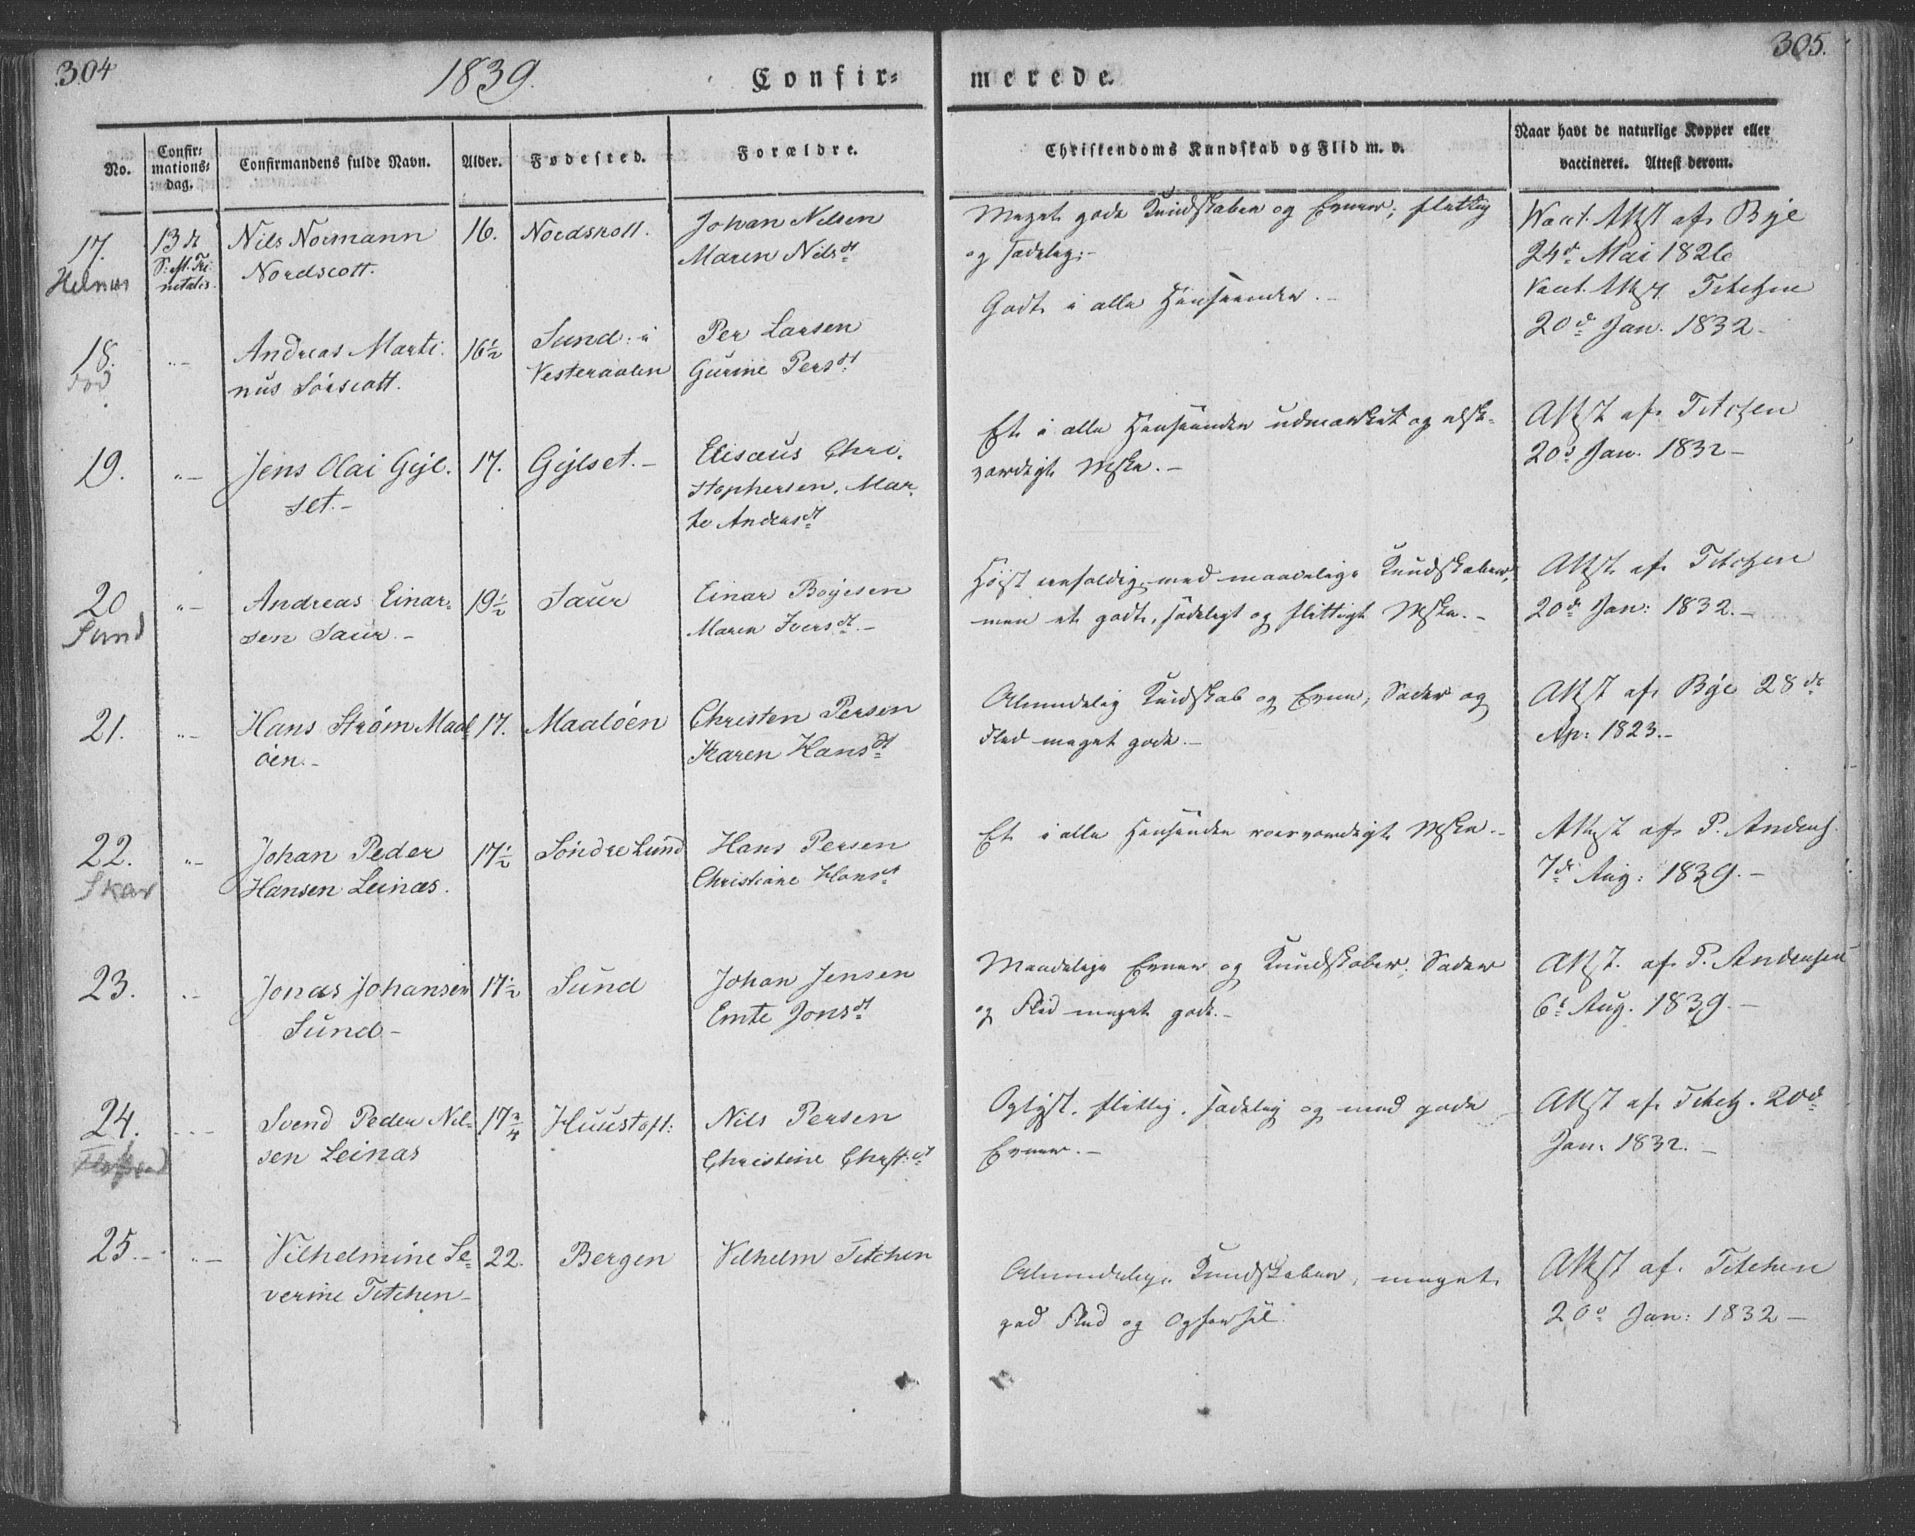 304
1839.
Confir=
merede.
305.
No.
Confir=
mations=
dag.
Confirmandens fulde Navn.
Alder.
Fødested.
Forældre.
Christendoms Kundskab og Flid m. v.
Naar havt de naturlige Kopper eller
vaccineret. Attest derom.
17.
13 d
S: aft. Tri
nitatis
Nils Normann
Nordscott.
16.
Nordskott.
Johan Nilsen
Maren Nilsdt
Meget gode Kundskaber og Evner; flittig
og sædelig.-
Vacc. Attst af Bye
24d Mai 1826
18.
Andreas Marti
nus Sørscott.
16½
Sund i
Vesteraalen
Per Larsen
Gurine Persdt
Godt i alle Henseender.-
Vacc. Attst. Titchen
20d Jan. 1832-
19.
Jens Olai Gejl.
set.-
17.
Gejlset.-
Elisæus Chri.
stophersen. Mar
te Andersdt
Et i alle Henseender udmærket og elsk-
værdigt Mske.-
Attst af Titchen
20d Jan. 1832-
20
Sund
Andreas Einar=
sen Saur.-
19½
Saur
Einar Bøyesen
Maren Iversdt.-
Høist eenfoldig med maadelige Kundskaber,
men et godt, sædeligt og flittigt Mske.-
Attst. af Titchen
20d Jan: 1832.-
21.
Hans Strøm Maal
öen.-
17.
Maalöen
Christen Persen
Karen Hansdt
Almindelig Kundskab og Evne; Sæder og
Flid meget gode.-
Attst af Bye 28de
Ap: 1823.-
22.
Skar
Johan Peder
Hansen Leinæs.
17½
Söndre Lund
Hans Persen
Christiane Hansdt
Et i alle Henseender roesværdigt Mske.-
Attst af P. Anders.
7d Aug: 1839.-
23.
Jonas Johansen
Sund-
17½
Sund
Johan Jensen
Emte Jonsdt
Maadelige Evner og Kundskaber; Sæder
og Flid meget gode.-
Attst. af P. Andersen
6d Aug. 1839.-
24.
Svend Peder Nil=
sen Leinæs
17¾
Huustoft:
Nils Persen
Christine Chrstdt
Oplyst, flittig, sædelig og med gode
Evner.-
Attst af Titch. 20d
Jan. 1832.-
25.-
Vilhelmine Se=
verine Titchen-
22.
Bergen
Vilhelm Titchen
Almindelige Kundskaber, meget
god Flid og Opførsel.
Attst af. Titchen
20d Jan: 1832-